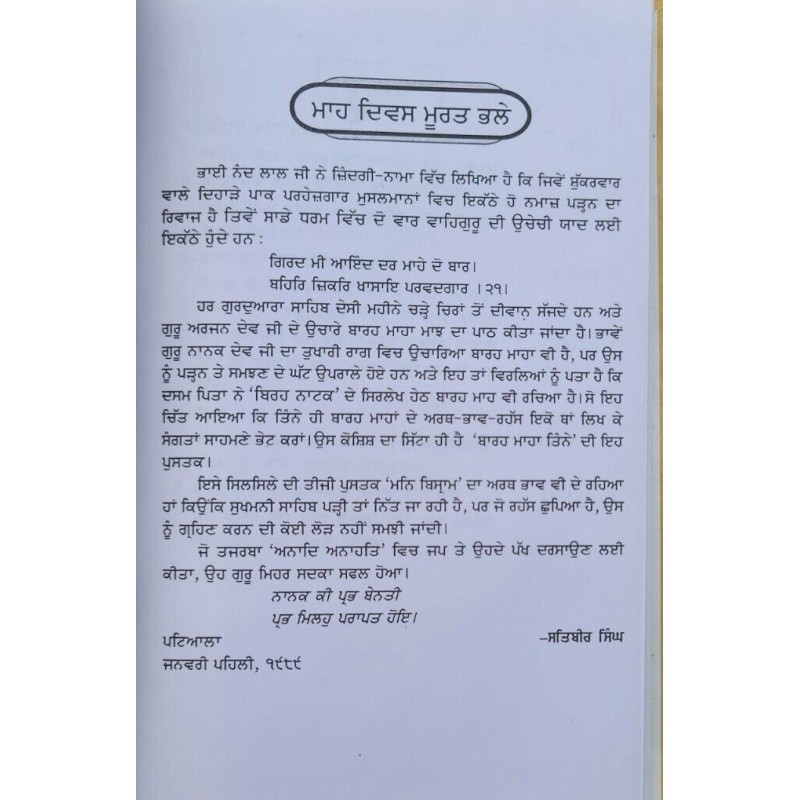 ਮਾਹ ਦਿਵਸ ਮੂਰਤ ਭਲੇ
ਭਾਈ ਨੰਦ ਲਾਲ ਜੀ ਨੇ ਜ਼ਿੰਦਗੀ-ਨਾਮਾ ਵਿੱਚ ਲਿਖਿਆ ਹੈ ਕਿ ਜਿਵੇਂ ਸ਼ੁੱਕਰਵਾਰ
ਵਾਲੇ ਦਿਹਾੜੇ ਪਾਕ ਪਰਹੇਜ਼ਗਾਰ ਮੁਸਲਮਾਨਾਂ ਵਿਚ ਇਕੱਠੇ ਹੋ ਨਮਾਜ਼ ਪੜ੍ਹਨ ਦਾ
ਰਿਵਾਜ ਹੈ ਤਿਵੇਂ ਸਾਡੇ ਧਰਮ ਵਿੱਚ ਦੋ ਵਾਰ ਵਾਹਿਗੁਰੂ ਦੀ ਉਚੇਚੀ ਯਾਦ ਲਈ
ਇਕੱਠੇ ਹੁੰਦੇ ਹਨ :
ਗਿਰਦ ਮੀ ਆਇੰਦ ਦਰ ਮਾਹੇ ਦੋ ਬਾਰ।
ਬਹਿਰਿ ਜ਼ਿਕਰਿ ਖਾਸਾਇ ਪਰਵਦਗਾਰ ।੨੧।
ਹਰ ਗੁਰਦੁਆਰਾ ਸਾਹਿਬ ਦੇਸੀ ਮਹੀਨੇ ਚੜ੍ਹੇ ਚਿਰਾਂ ਤੋਂ ਦੀਵਾਨ ਸੱਜਦੇ ਹਨ ਅਤੇ
ਗੁਰੂ ਅਰਜਨ ਦੇਵ ਜੀ ਦੇ ਉਚਾਰੇ ਬਾਰਹ ਮਾਹਾ ਮਾਝ ਦਾ ਪਾਠ ਕੀਤਾ ਜਾਂਦਾ ਹੈ। ਭਾਵੇਂ
ਗੁਰੂ ਨਾਨਕ ਦੇਵ ਜੀ ਦਾ ਤੁਖਾਰੀ ਰਾਗ ਵਿਚ ਉਚਾਰਿਆ ਬਾਰਹ ਮਾਹਾ ਵੀ ਹੈ, ਪਰ ਉਸ
ਨੂੰ ਪੜ੍ਹਨ ਤੇ ਸਮਝਣ ਦੇ ਘੱਟ ਉਪਰਾਲੇ ਹੋਏ ਹਨ ਅਤੇ ਇਹ ਤਾਂ ਵਿਰਲਿਆਂ ਨੂੰ ਪਤਾ ਹੈ ਕਿ
ਦਸਮ ਪਿਤਾ ਨੇ 'ਬਿਰਹ ਨਾਟਕ' ਦੇ ਸਿਰਲੇਖ ਹੇਠ ਬਾਰਹ ਮਾਹ ਵੀ ਰਚਿਆ ਹੈ। ਸੋ ਇਹ
ਚਿੱਤ ਆਇਆ ਕਿ ਤਿੰਨੇ ਹੀ ਬਾਰਹ ਮਾਹਾਂ ਦੇ ਅਰਥ-ਭਾਵ-ਰਹੱਸ ਇਕੋ ਥਾਂ ਲਿਖ ਕੇ
ਸੰਗਤਾਂ ਸਾਹਮਣੇ ਭੇਟ ਕਰਾਂ। ਉਸ ਕੋਸ਼ਿਸ਼ ਦਾ ਸਿੱਟਾ ਹੀ ਹੈ 'ਬਾਰਹ ਮਾਹਾ ਤਿੰਨੇ' ਦੀ ਇਹ
ਪੁਸਤਕ।
ਇਸੇ ਸਿਲਸਿਲੇ ਦੀ ਤੀਜੀ ਪੁਸਤਕ 'ਮਨਿ ਬਿਸ੍ਰਾਮ' ਦਾ ਅਰਥ ਭਾਵ ਵੀ ਦੇ ਰਹਿਆ
ਹਾਂ ਕਿਉਂਕਿ ਸੁਖਮਨੀ ਸਾਹਿਬ ਪੜ੍ਹੀ ਤਾਂ ਨਿੱਤ ਜਾ ਰਹੀ ਹੈ, ਪਰ ਜੋ ਰਹੱਸ ਛੁਪਿਆ ਹੈ, ਉਸ
ਨੂੰ ਗ੍ਰਹਿਣ ਕਰਨ ਦੀ ਕੋਈ ਲੋੜ ਨਹੀਂ ਸਮਝੀ ਜਾਂਦੀ।
ਜੋ ਤਜਰਬਾ 'ਅਨਾਦਿ ਅਨਾਹਤਿ' ਵਿਚ ਜਪ ਤੇ ਉਹਦੇ ਪੱਖ ਦਰਸਾਉਣ ਲਈ
ਕੀਤਾ, ਉਹ ਗੁਰੂ ਮਿਹਰ ਸਦਕਾ ਸਫਲ ਹੋਆ।
ਨਾਨਕ ਕੀ ਪ੍ਰਭ ਬੇਨਤੀ
ਪ੍ਰਭ ਮਿਲਹੁ ਪਰਾਪਤ ਹੋਇ।
ਪਟਿਆਲਾ –ਸਤਿਬੀਰ ਸਿੰਘ
ਜਨਵਰੀ ਪਹਿਲੀ, ੧੯੮੯